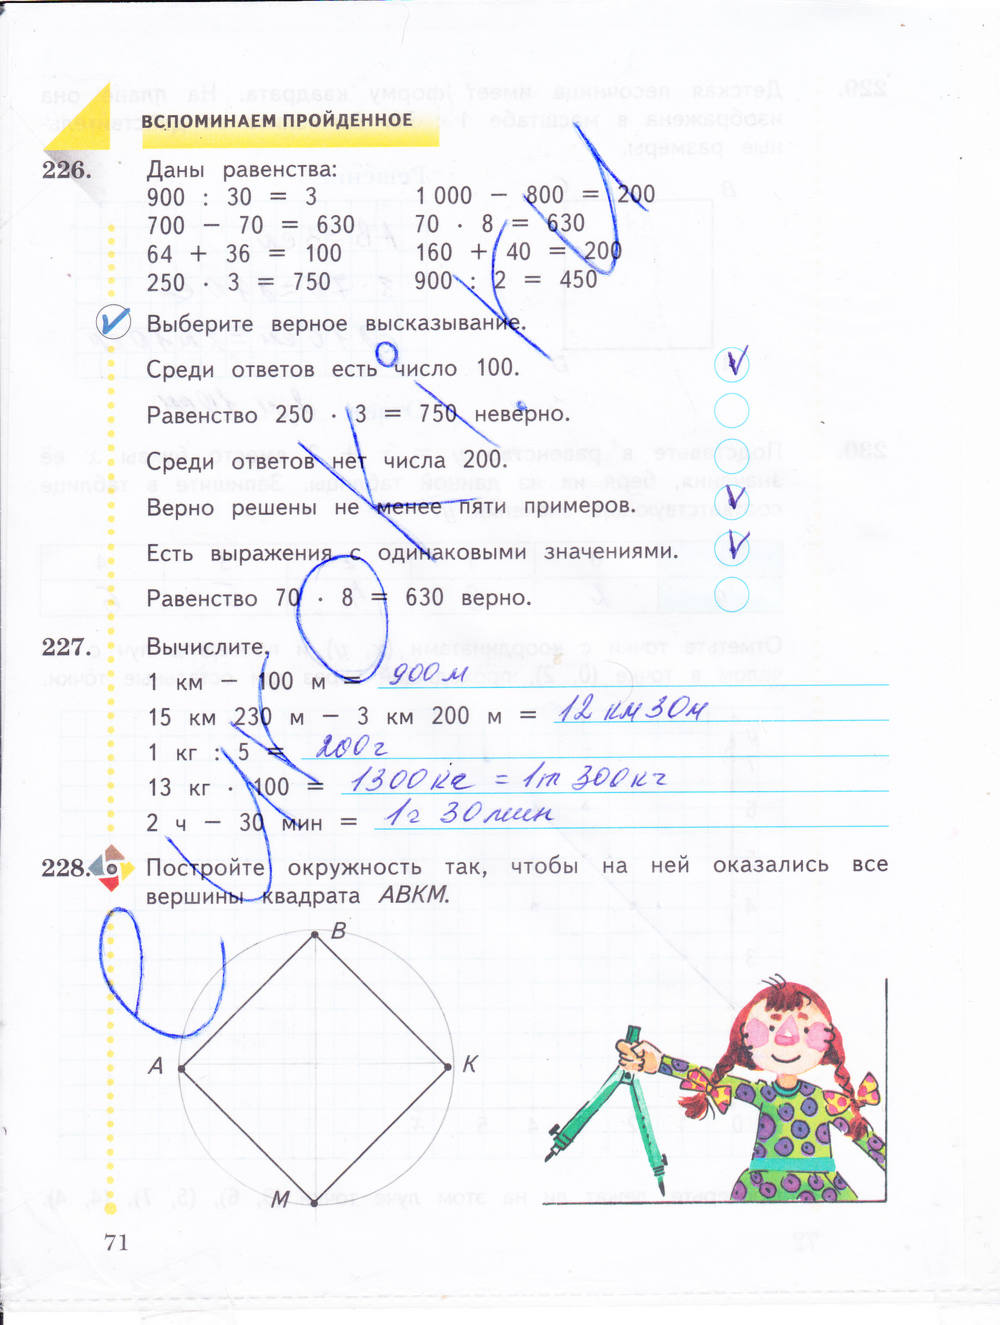 ВСПОМИНАЕМ ПРОЙДЕННОЕ
226. Даны равенства:
900 : 30 = 3 1 000 − 800 = 200
700 − 70 = 630 70 · 8 = 630
64 + 36 = 100 160 + 40 = 200
250 · 3 = 750 900 : 2 = 450
Выберите верное высказывание.
Среди ответов есть число 100.
Равенство 250 · 3 = 750 неверно.
Среди ответов нет числа 200.
Верно решены не менее пяти примеров.
Есть выражения с одинаковыми значениями.
Равенство 70 · 8 = 630 верно.
227. Вычислите.
1 км − 100 м = 900 м
15 км 230 м − 3 км 200 м = 12 км 30 м
1 кг : 5 = 200 г
13 кг · 100 = 1300 кг = 1 т 300 кг
2 ч − 30 мин = 1 ч 30 мин
228. Постройте окружность так, чтобы на ней оказались все
вершины квадрата АВКМ.
В
А
К
М
71